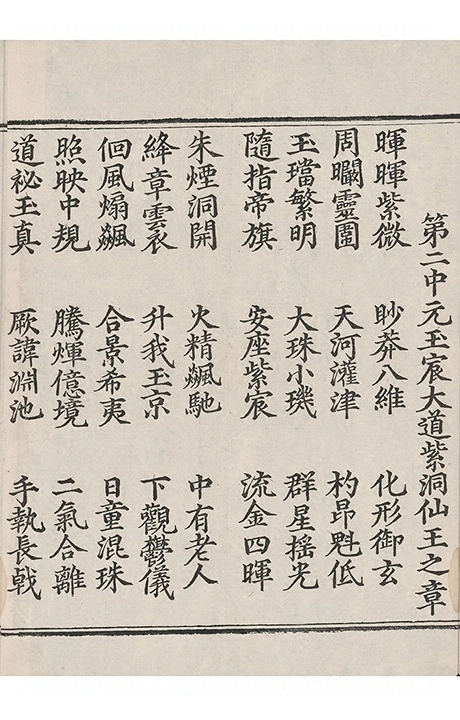 第二中元玉宸大道紫洞仙王之章
暉暉紫微　眇莽八維　化形御玄
周矙靈圃　天河灌津　杓昂魁低
玉璫繁明　大珠小璣　群星搖光
隨指帝旗　安座紫宸　流金四暉
朱煙洞開　火精飆馳　中有老人
絳章雲衣　升我玉京　下觀鬱儀
佪風煽飆　合景希夷　日童混珠
照映中規　騰煇億境　二氣合離
道祕玉真　厥諱淵池　手執長戟